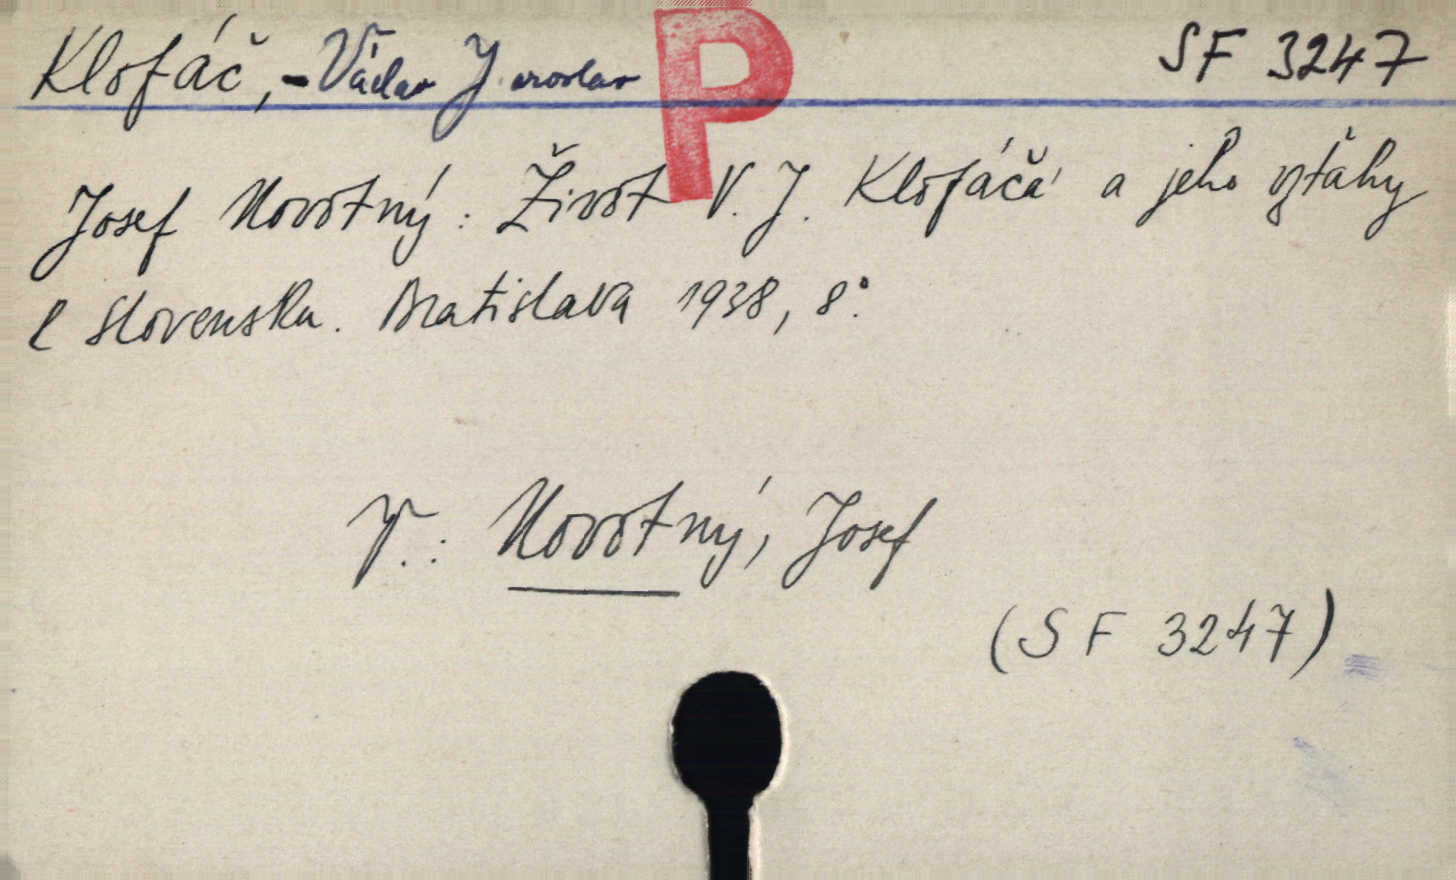 Klofáč, - Václav Jaroslav P SF 3247
Josef Novotný: Život V. J. Klofáča a jeho vzťahy
k Slovensku. Bratislava 1938, 8°.
V.: Novotný, Josef
(SF 3247)